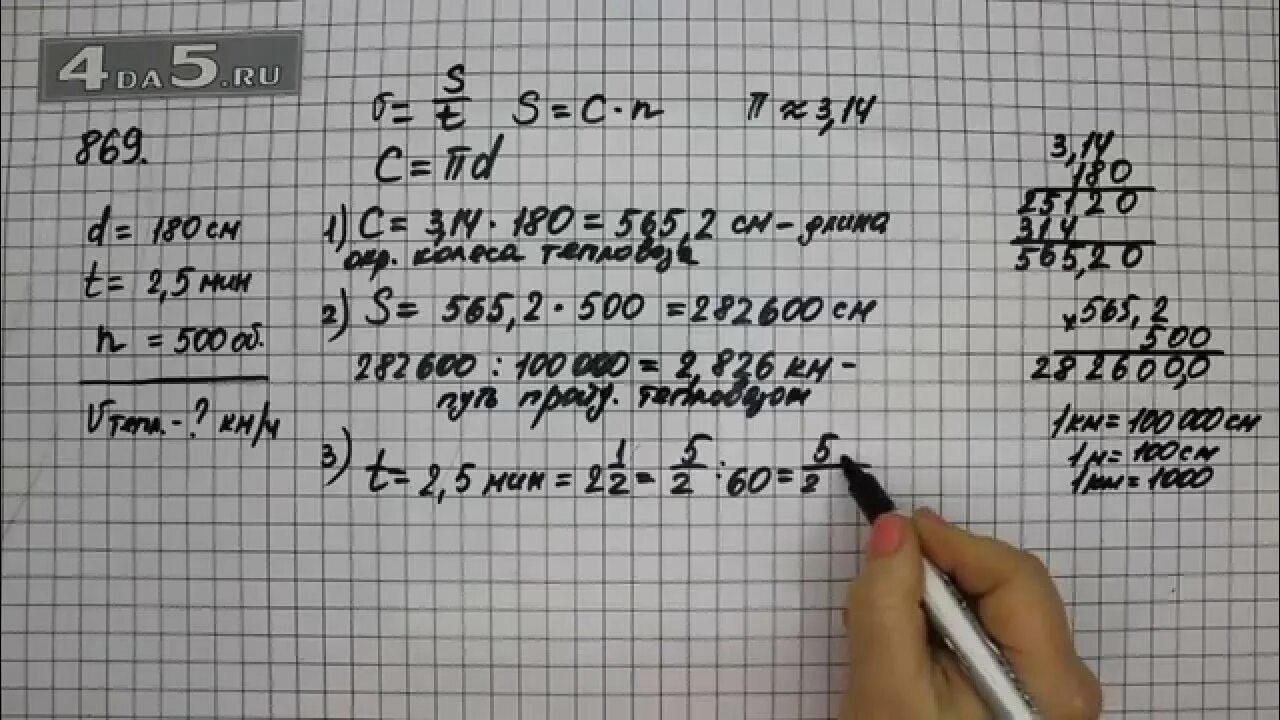 4DA5.RU
869.
d = 180 см
t = 2,5 мин
n = 500 об.
Vтепл. - ? км/ч
v = S/t S = C · n π ≈ 3,14
C = πd
1) C = 3,14 · 180 = 565,2 см - длина
окр. колеса тепловоза
2) S = 565,2 · 500 = 282600 см
282600 : 100000 = 2,826 км -
путь пройд. тепловозом
3) t = 2,5 мин = 2 1/2 = 5/2 : 60 = 5/2
3,14
180
25120
314
565,20
×565,2
500
282600,0
1 км = 100 000 см
1 м = 100 см
1 км = 1000